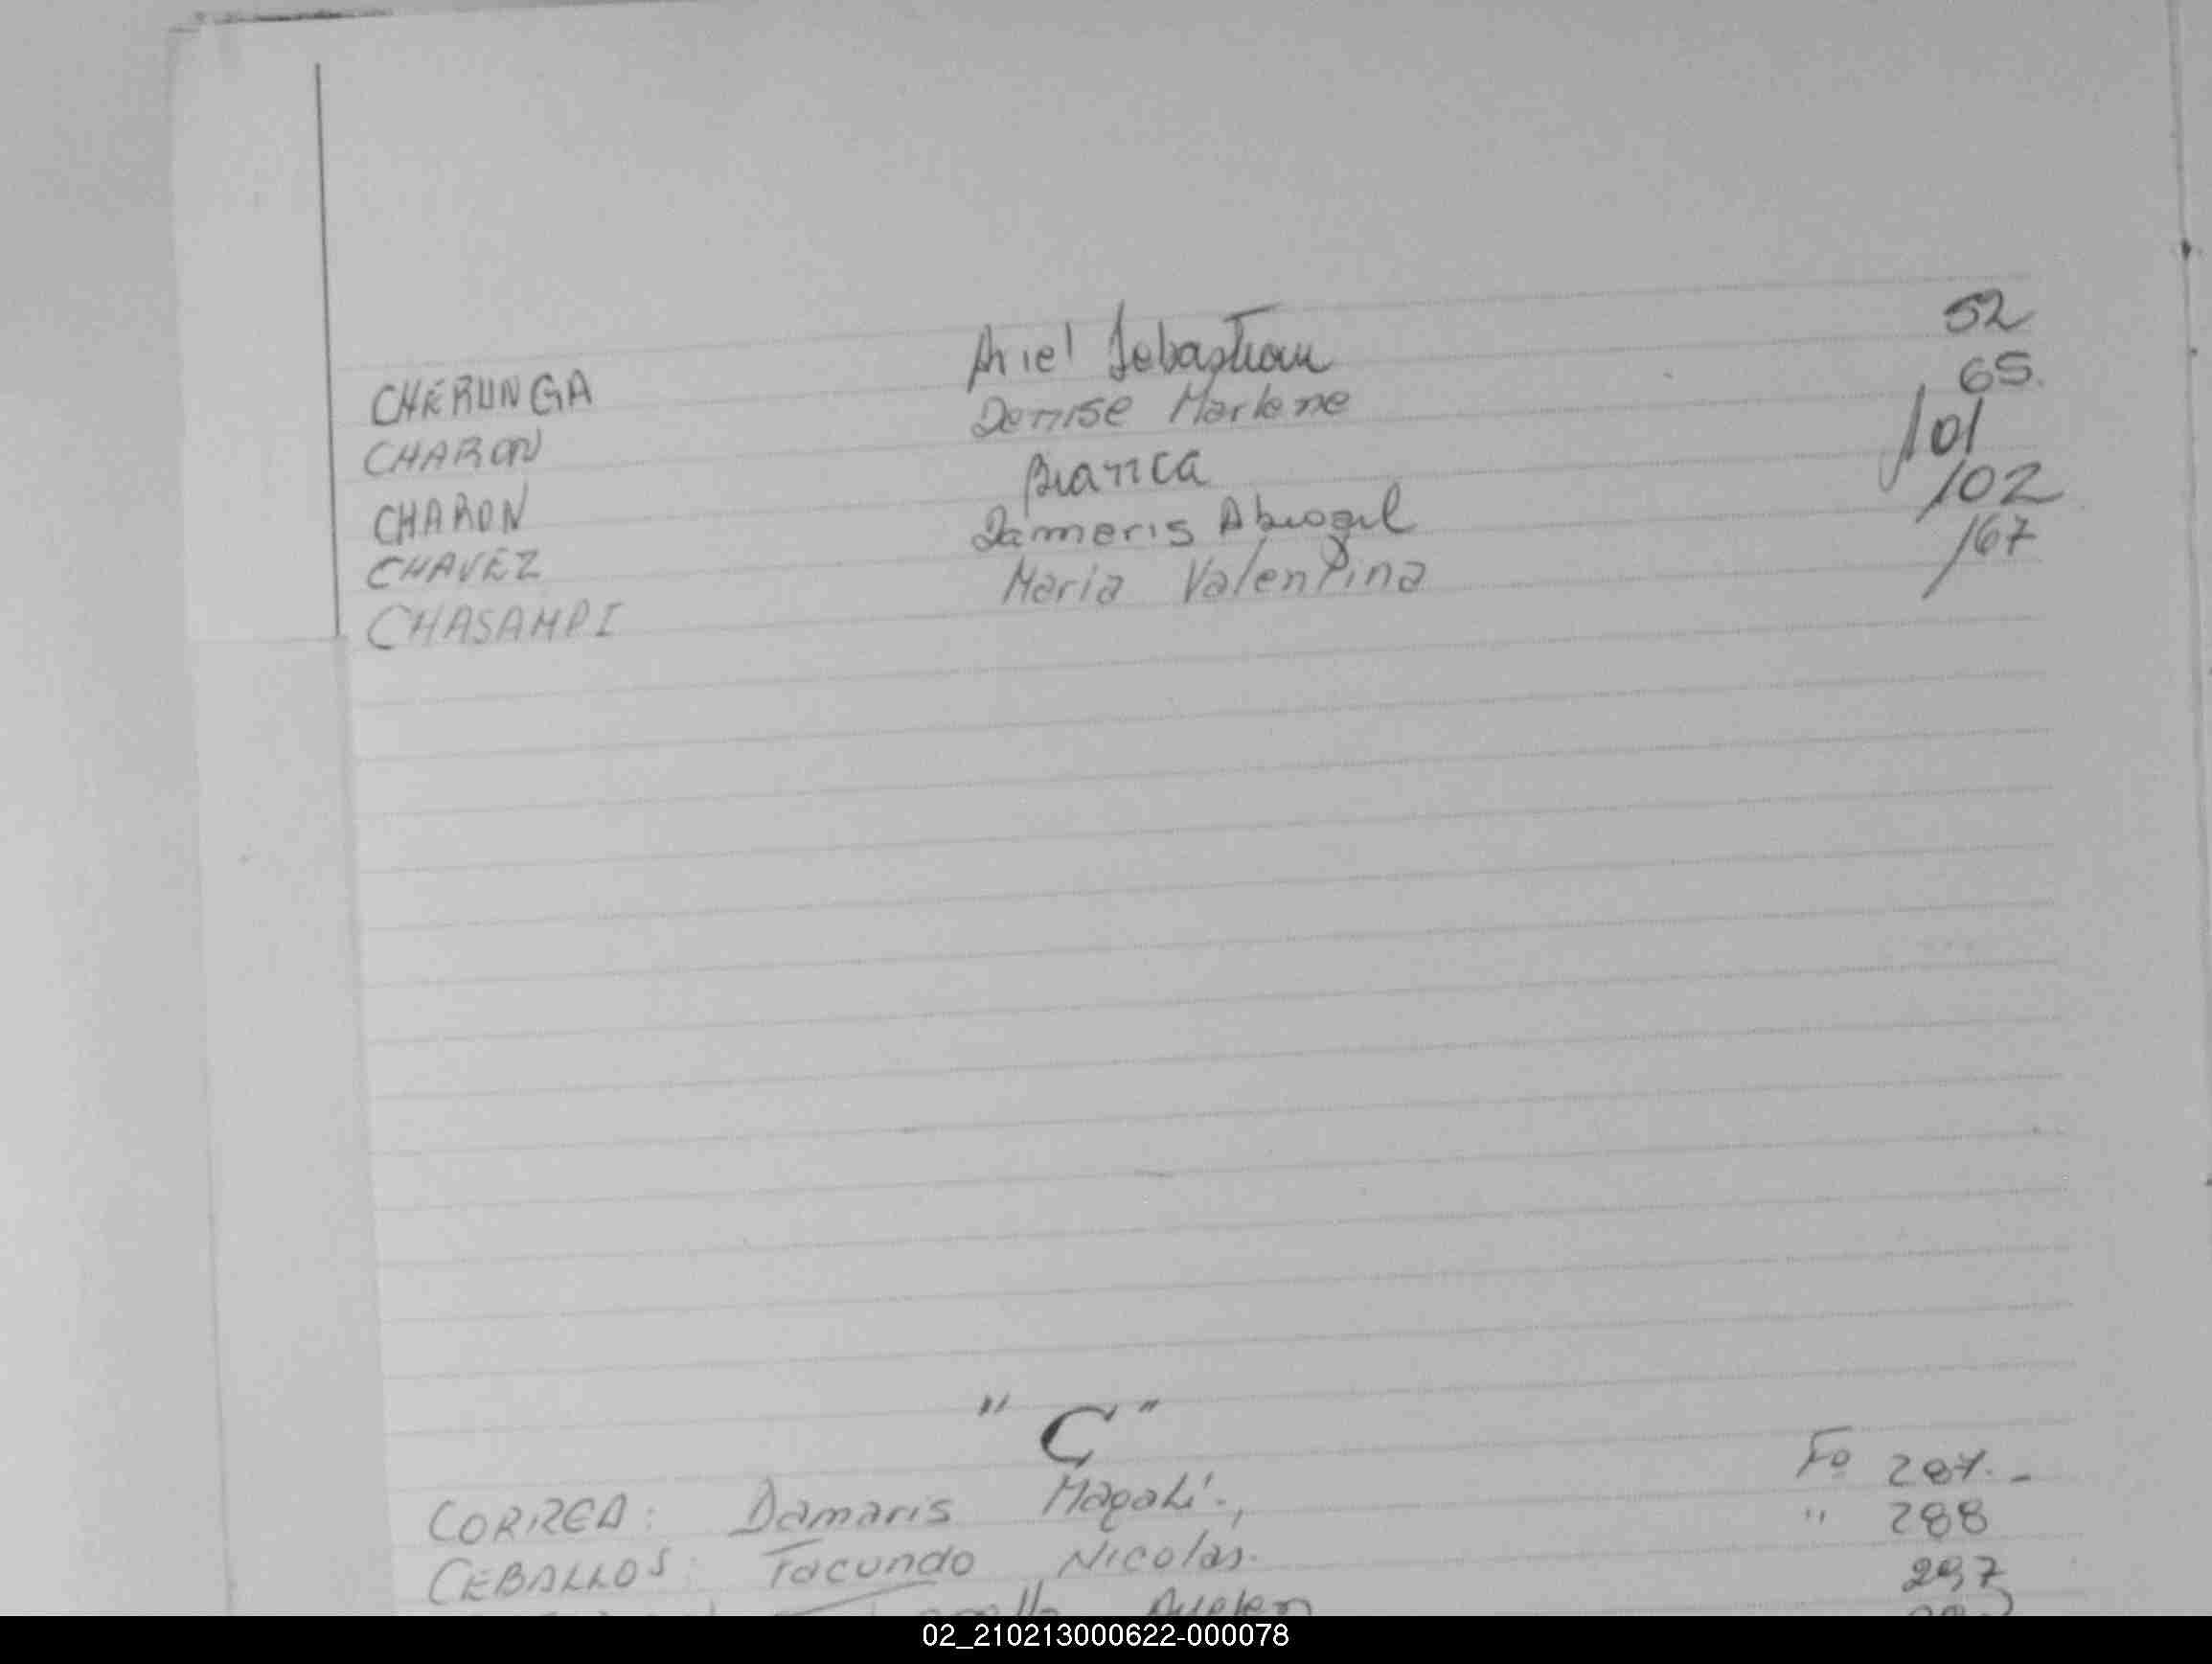 CHERUNGA Ariel Sebastian 52
CHARON Denise Marlene 65.
CHARON Bianca 101
CHAVEZ Dameris Abigail 102
CHASAMPI Maria Valentina 167
" C "
CORREA: Damaris Magalí., Fo 287.-
CEBALLOS: Facundo Nicolás. " 288
297
02_210213000622-000078